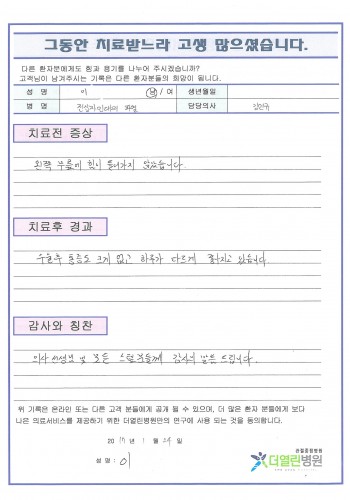 그동안 치료받느라 고생 많으셨습니다.
다른 환자분에게도 힘과 용기를 나누어 주시겠습니까?
고객님이 남겨주시는 기록은 다른 환자분들의 희망이 됩니다.
성 명 이 남 / 여 생년월일
병 명 전십자인대의 파열 담당의사
치료전 증상
왼쪽 무릎에 힘이 들어가지 않았습니다.
치료후 경과
수술후 통증도 크게 없고 하루가 다르게 좋아지고 있습니다.
감사와 칭찬
의사 선생님 및 모든 스텝분들께 감사의 말씀 드립니다.
위 기록은 온라인 또는 다른 고객 분들에게 공개 될 수 있으며, 더 많은 환자 분들에게 보다
나은 의료서비스를 제공하기 위한 더열린병원만의 연구에 사용 되는 것을 동의합니다.
20 년 1 월 24 일
성 명 : 이
관절중점병원
더열린병원